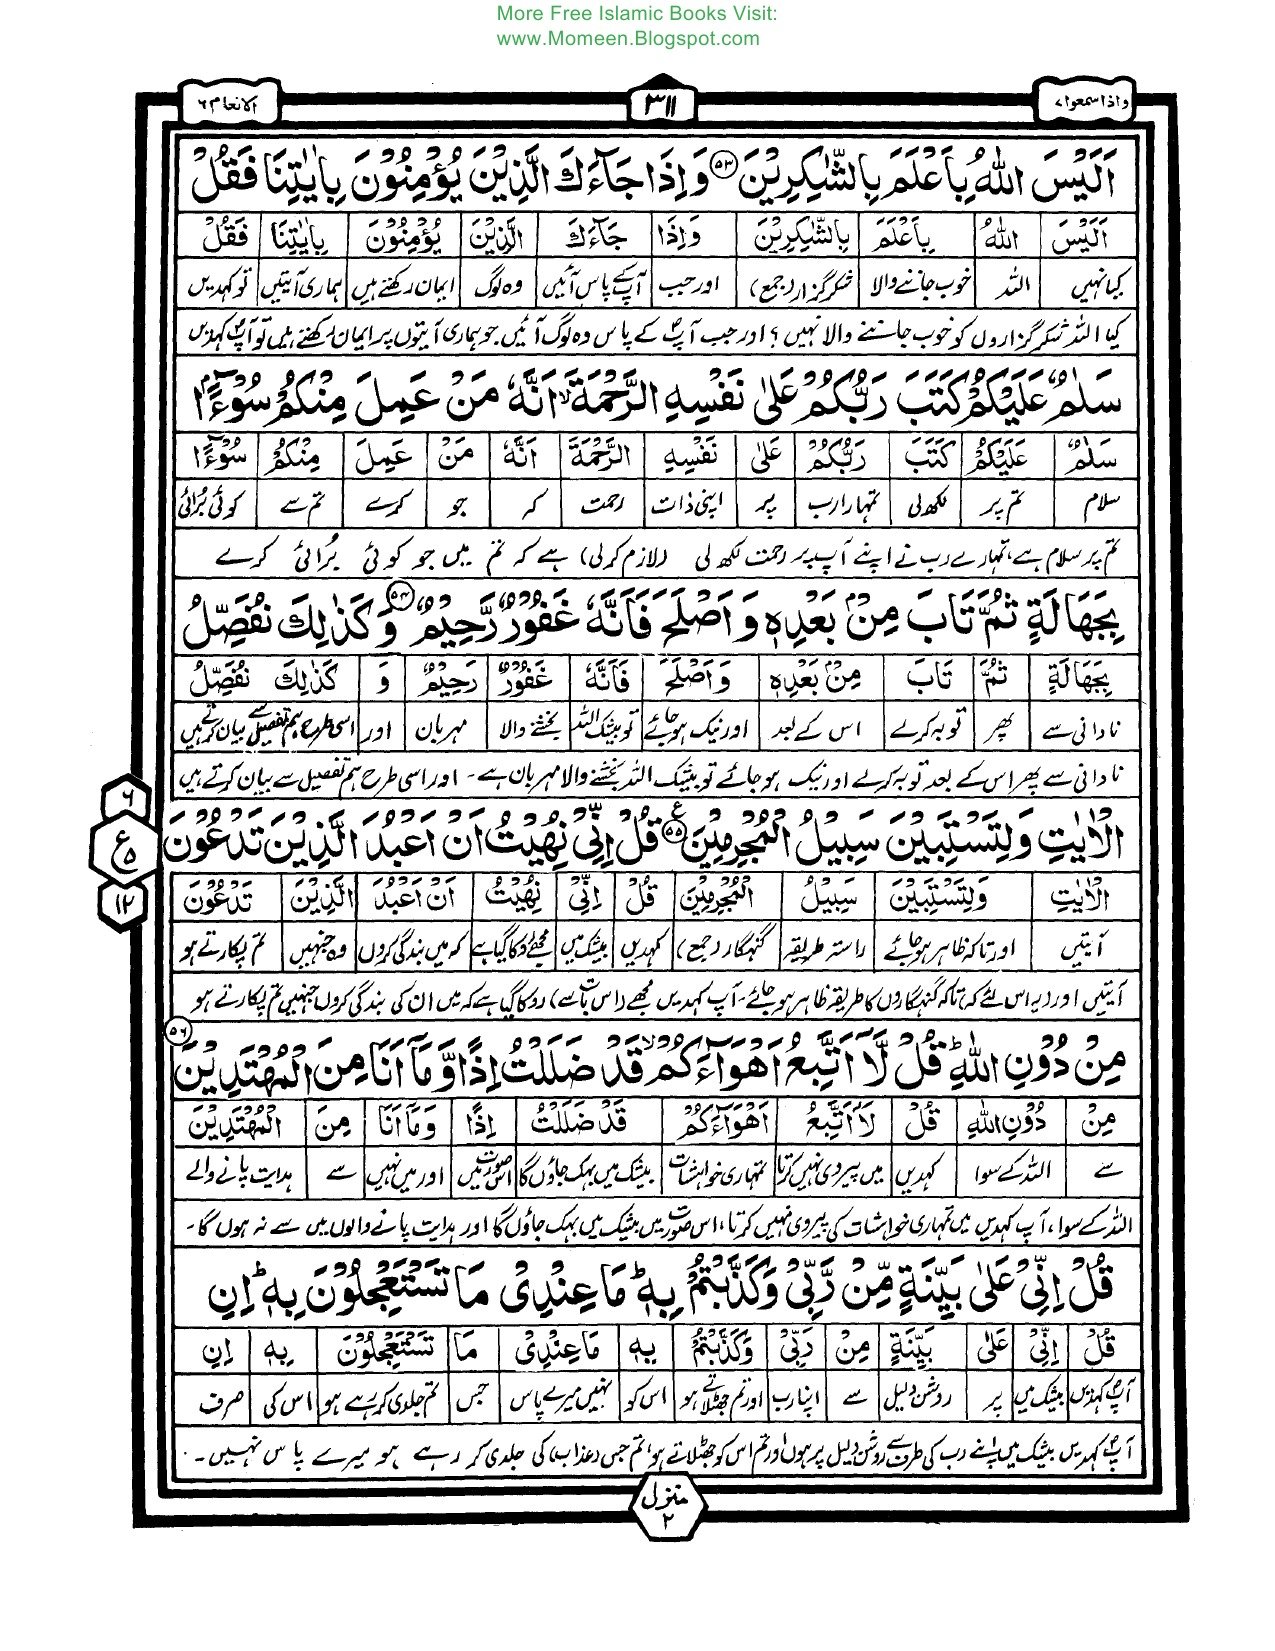 More Free Islamic Books Visit:
www.Momeen.Blogspot.com
واذاسمعوا٧
٣١١
الانعام ٦
اَلَيْسَ اللّٰهُ بِاَعْلَمَ بِالشّٰكِرِيْنَ ﴿٥٣﴾ وَاِذَا جَآءَكَ الَّذِيْنَ يُؤْمِنُوْنَ بِاٰيٰتِنَا فَقُلْ
اَلَيْسَ اللّٰهُ بِاَعْلَمَ بِالشّٰكِرِيْنَ وَاِذَا جَآءَكَ الَّذِيْنَ يُؤْمِنُوْنَ بِاٰيٰتِنَا فَقُلْ
کیا نہیں اللہ خوب جاننے والا شکر گزار (جمع) اور جب آپ کے پاس آئیں وہ لوگ ایمان رکھتے ہیں ہماری آیتیں تو کہدیں
کیا اللہ شکر گزاروں کو خوب جاننے والا نہیں؟ اور جب آپؐ کے پاس وہ لوگ آئیں جو ہماری آیتوں پر ایمان رکھتے ہیں تو آپؐ کہدیں
سَلٰمٌ عَلَيْكُمْ كَتَبَ رَبُّكُمْ عَلٰى نَفْسِهِ الرَّحْمَةَ ۙ اَنَّهٗ مَنْ عَمِلَ مِنْكُمْ سُوْٓءًۢا
سَلٰمٌ عَلَيْكُمْ كَتَبَ رَبُّكُمْ عَلٰى نَفْسِهِ الرَّحْمَةَ اَنَّهٗ مَنْ عَمِلَ مِنْكُمْ سُوْٓءًۢا
سلام تم پر لکھ لی تمہارا رب پر اپنی ذات رحمت کہ جو کرے تم سے کوئی برائی
تم پر سلام ہے، تمہارے رب نے اپنے آپ پر رحمت لکھ لی (لازم کرلی) ہے کہ تم میں جو کوئی بُرائی کرے
بِجَهَالَةٍ ثُمَّ تَابَ مِنْۢ بَعْدِهٖ وَاَصْلَحَ فَاَنَّهٗ غَفُوْرٌ رَّحِيْمٌ ﴿٥٤﴾ وَكَذٰلِكَ نُفَصِّلُ
بِجَهَالَةٍ ثُمَّ تَابَ مِنْۢ بَعْدِهٖ وَاَصْلَحَ فَاَنَّهٗ غَفُوْرٌ رَّحِيْمٌ وَ كَذٰلِكَ نُفَصِّلُ
نادانی سے پھر توبہ کرلے اس کے بعد اور نیک ہوجائے تو بیشک اللہ بخشنے والا مہربان اور اسی طرح ہم تفصیل سے بیان کرتے ہیں
نادانی سے پھر اس کے بعد توبہ کرلے اور نیک ہوجائے تو بیشک اللہ بخشنے والا مہربان ہے۔ اور اسی طرح ہم تفصیل سے بیان کرتے ہیں
٦
ع
٥
١٢
الْاٰيٰتِ وَلِتَسْتَبِيْنَ سَبِيْلُ الْمُجْرِمِيْنَ ﴿٥٥﴾ ع قُلْ اِنِّيْ نُهِيْتُ اَنْ اَعْبُدَ الَّذِيْنَ تَدْعُوْنَ
الْاٰيٰتِ وَلِتَسْتَبِيْنَ سَبِيْلُ الْمُجْرِمِيْنَ قُلْ اِنِّيْ نُهِيْتُ اَنْ اَعْبُدَ الَّذِيْنَ تَدْعُوْنَ
آیتیں اور تاکہ ظاہر ہوجائے راستہ طریقہ گنہگار (جمع) کہدیں بیشک میں مجھے روکا گیا ہے کہ میں بندگی کروں وہ جنہیں تم پکارتے ہو
آیتیں اور (یہ اس لئے کہ) تاکہ گنہگاروں کا طریقہ ظاہر ہوجائے۔ آپ کہدیں مجھے (اس بات سے) روکا گیا ہے کہ میں ان کی بندگی کروں جنہیں تم پکارتے ہو
مِنْ دُوْنِ اللّٰهِ ؕ قُلْ لَّاۤ اَتَّبِعُ اَهْوَآءَكُمْ ۙ قَدْ ضَلَلْتُ اِذًا وَّمَاۤ اَنَا مِنَ الْمُهْتَدِيْنَ ﴿٥٦﴾
مِنْ دُوْنِ اللّٰهِ قُلْ لَّاۤ اَتَّبِعُ اَهْوَآءَكُمْ قَدْ ضَلَلْتُ اِذًا وَّمَاۤ اَنَا مِنَ الْمُهْتَدِيْنَ
سے اللہ کے سوا کہدیں میں پیروی نہیں کرتا تمہاری خواہشات بیشک میں بہک جاؤں گا اس صورت میں اور میں نہیں سے ہدایت پانے والے
اللہ کے سوا، آپ کہدیں میں تمہاری خواہشات کی پیروی نہیں کرتا، اس صورت میں بیشک میں بہک جاؤں گا اور ہدایت پانے والوں میں سے نہ ہوں گا۔
قُلْ اِنِّيْ عَلٰى بَيِّنَةٍ مِّنْ رَّبِّيْ وَكَذَّبْتُمْ بِهٖ ؕ مَا عِنْدِيْ مَا تَسْتَعْجِلُوْنَ بِهٖ ؕ اِنِ
قُلْ اِنِّيْ عَلٰى بَيِّنَةٍ مِّنْ رَّبِّيْ وَكَذَّبْتُمْ بِهٖ مَا عِنْدِيْ مَا تَسْتَعْجِلُوْنَ بِهٖ اِنِ
آپؐ کہدیں بیشک میں پر روشن دلیل سے اپنا رب اور تم جھٹلاتے ہو اس کو نہیں میرے پاس جس تم جلدی کررہے ہو اس کی صرف
آپؐ کہدیں بیشک میں اپنے رب کی طرف سے روشن دلیل پر ہوں اور تم اس کو جھٹلاتے ہو، تم جس (عذاب) کی جلدی کر رہے ہو میرے پاس نہیں۔
منزل
٢